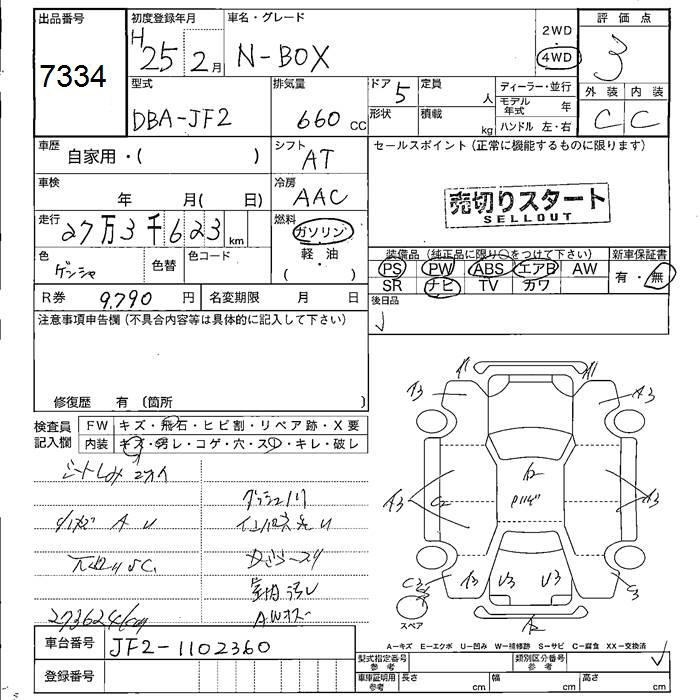 出品番号
7334
初度登録年月
H 25 2月
車名・グレード
N-BOX
2WD
4WD
評価点
3
外装 内装
C C
型式
DBA-JF2
排気量
660 CC
ドア 5
形状
定員 人
積載 kg
ディーラー・並行
モデル年式 年
ハンドル 左・右
車歴
自家用・( )
シフト
AT
セールスポイント (正常に機能するものに限ります)
車検
年 月( 日)
冷房
AAC
売切りスタート
SELLOUT
走行
27万3千623km
燃料
ガソリン
軽・油
( )
色
ゲンシャ
色替
色コード
装備品 (純正品に限り○をつけて下さい)
新車保証書
PS PW ABS エアB AW
SR ナビ TV カワ
有・無
R券 9,790 円
名変期限 月 日
後日品
注意事項申告欄 (不具合内容等は具体的に記入して下さい)
修復歴 有 〔箇所 〕
検査員記入欄
FW キズ・飛石・ヒビ割・リペア跡・X要
内装 キズ・汚レ・コゲ・穴・スレ・キレ・破レ
A3
A3
A3
C2
A3
A3
U3 U3
スペア
273624km
A-キズ E-エクボ U-凹み W-補修跡 S-サビ C-腐食 XX-交換済
車台番号
JF2-1102360
登録番号
型式指定番号参考
類別区分番号参考
車庫証明用参考
長さ cm
幅 cm
高さ cm